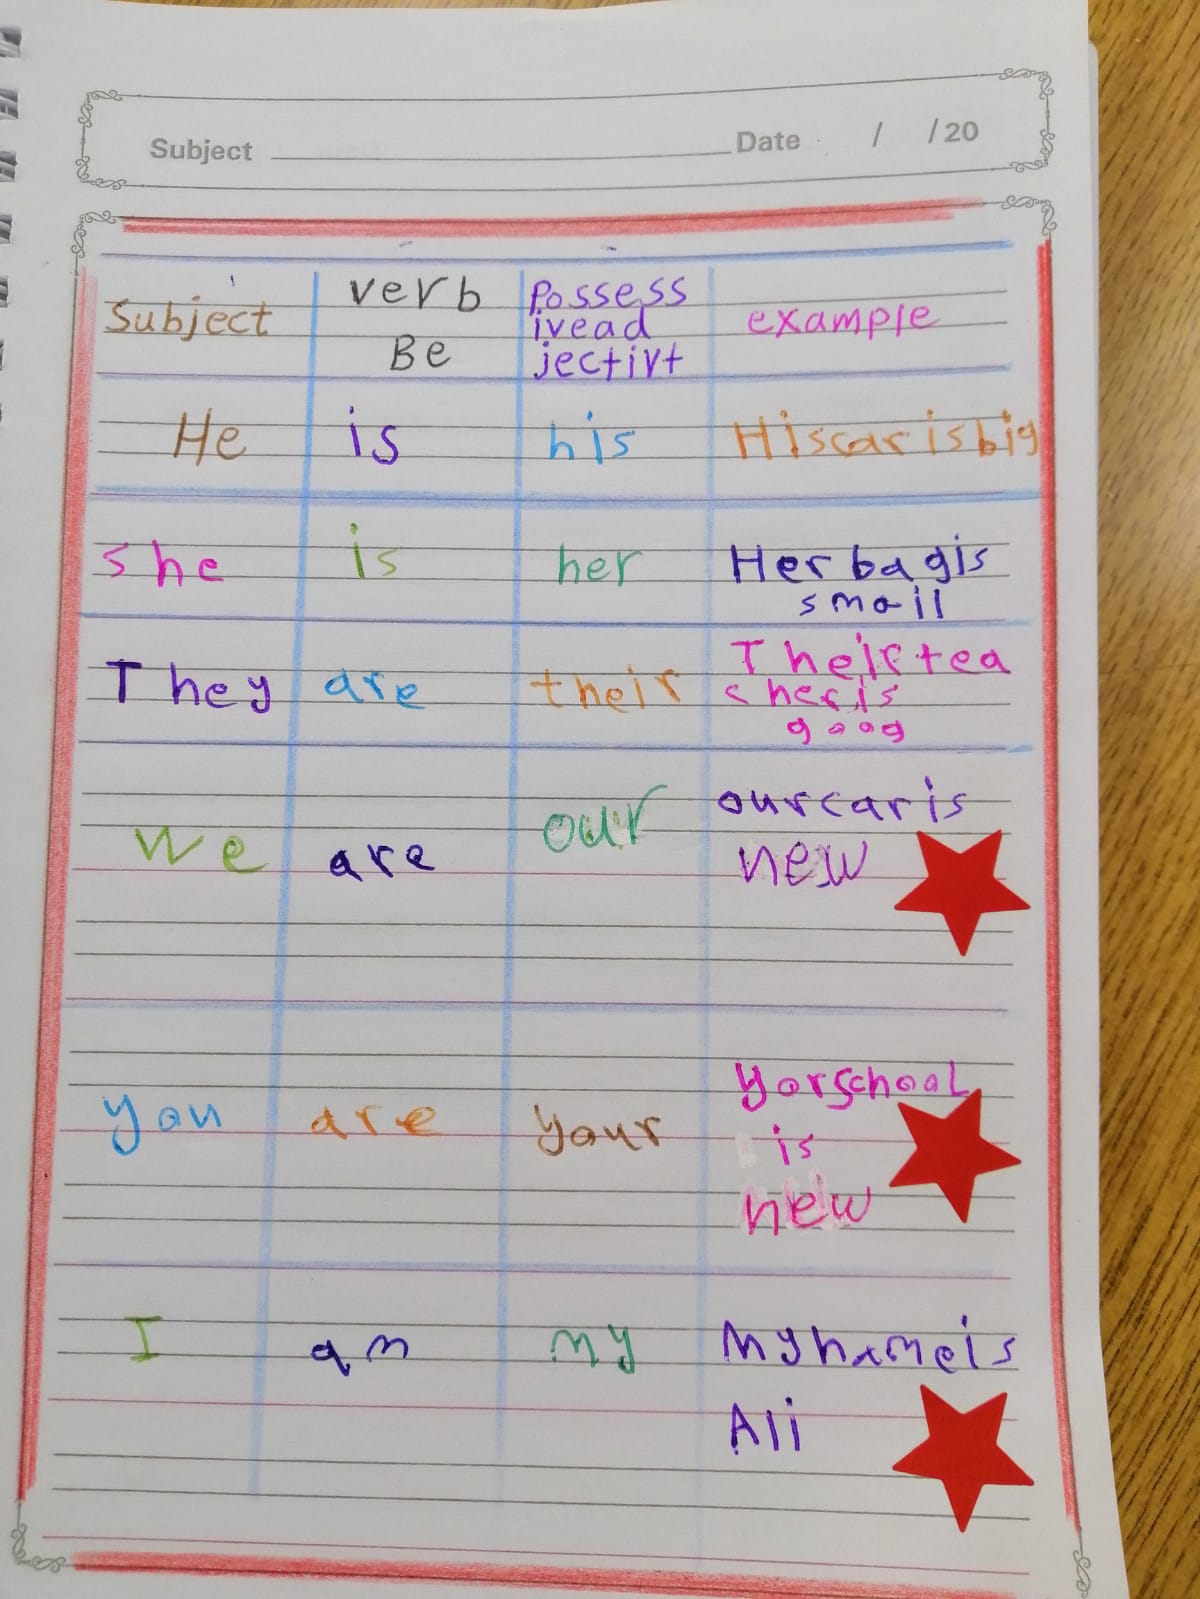 Subject Date / /20
Subject verb Be Possess ivead jectivt example
He is his Hiscar is big
She is her Her bag is
small
They are their Their tea
cher is
goog
We are our our car is
new
you are your yor school
is
new
I am my My name is
Ali